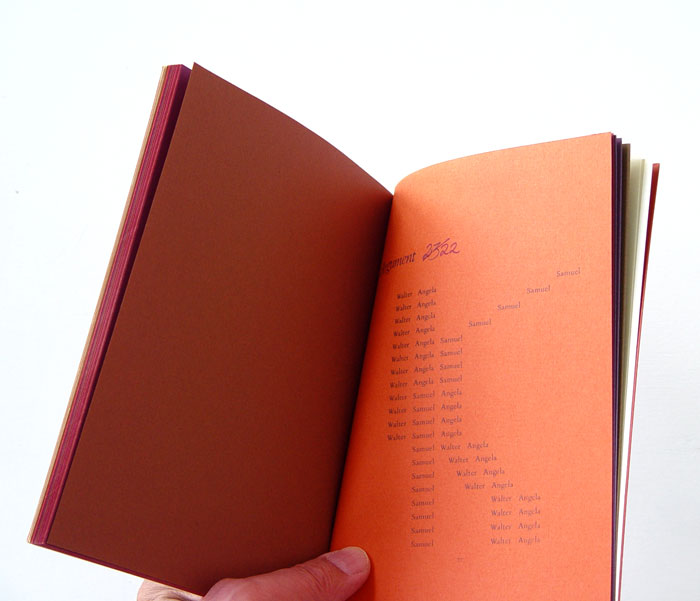 Argument 23/22
Walter Angela Samuel
Walter Angela Samuel
Walter Angela Samuel
Walter Angela Samuel
Walter Angela Samuel
Walter Angela Samuel
Walter Angela Samuel
Walter Angela Samuel
Walter Samuel Angela
Walter Samuel Angela
Walter Samuel Angela
Walter Samuel Angela
Samuel Walter Angela
Samuel Walter Angela
Samuel Walter Angela
Samuel Walter Angela
Samuel Walter Angela
Samuel Walter Angela
Samuel Walter Angela
Samuel Walter Angela